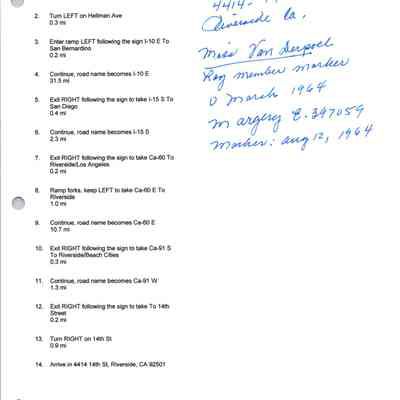 2. Turn LEFT on Hellman Ave
0.3 mi
3. Enter ramp LEFT following the sign I-10 E To
San Bernardino
0.2 mi
4. Continue, road name becomes I-10 E
31.5 mi
5. Exit RIGHT following the sign to take I-15 S To
San Diego
0.4 mi
6. Continue, road name becomes I-15 S
2.3 mi
7. Exit RIGHT following the sign to take Ca-60 To
Riverside/Los Angeles
0.2 mi
8. Ramp forks, keep LEFT to take Ca-60 E To
Riverside
1.0 mi
9. Continue, road name becomes Ca-60 E
10.7 mi
10. Exit RIGHT following the sign to take Ca-91 S
To Riverside/Beach Cities
0.3 mi
11. Continue, road name becomes Ca-91 W
1.3 mi
12. Exit RIGHT following the sign to take To 14th
Street
0.2 mi
13. Turn RIGHT on 14th St
0.9 mi
14. Arrive in 4414 14th St, Riverside, CA 92501
4414
Riverside Ca.
Miss Van Derpoel
Roy member marker
0 March 1964
Margery E. 397059
Marker: Aug 12, 1964